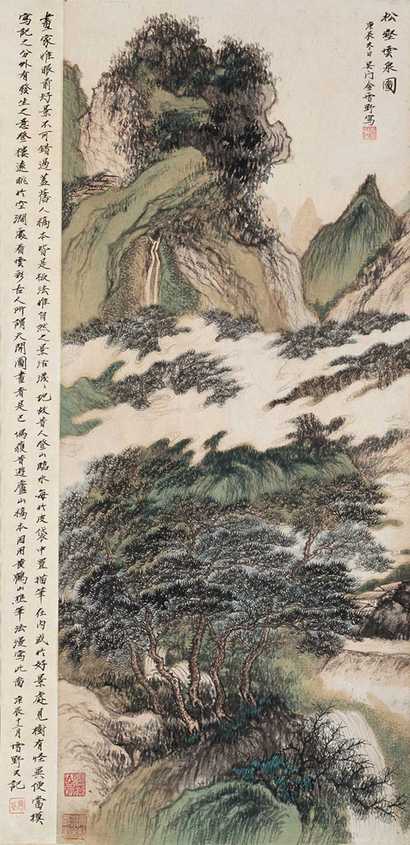 松壑雲泉圖
庚辰冬日吳門雪野寫
畫家惟眼前好景不可錯過蓋舊人稿本皆是板法惟自然之景活潑〻地故昔人登山臨水每於皮袋中置描筆在內或於好景處見樹有怪異便當摸
寫記之分外有發生之意登樓遠眺於空濶處看雲彩古人所謂天開圖畫者是已偶獲昔遊廬山稿本因用黃鶴山樵筆法漫寫此 庚辰十二月雪野又記